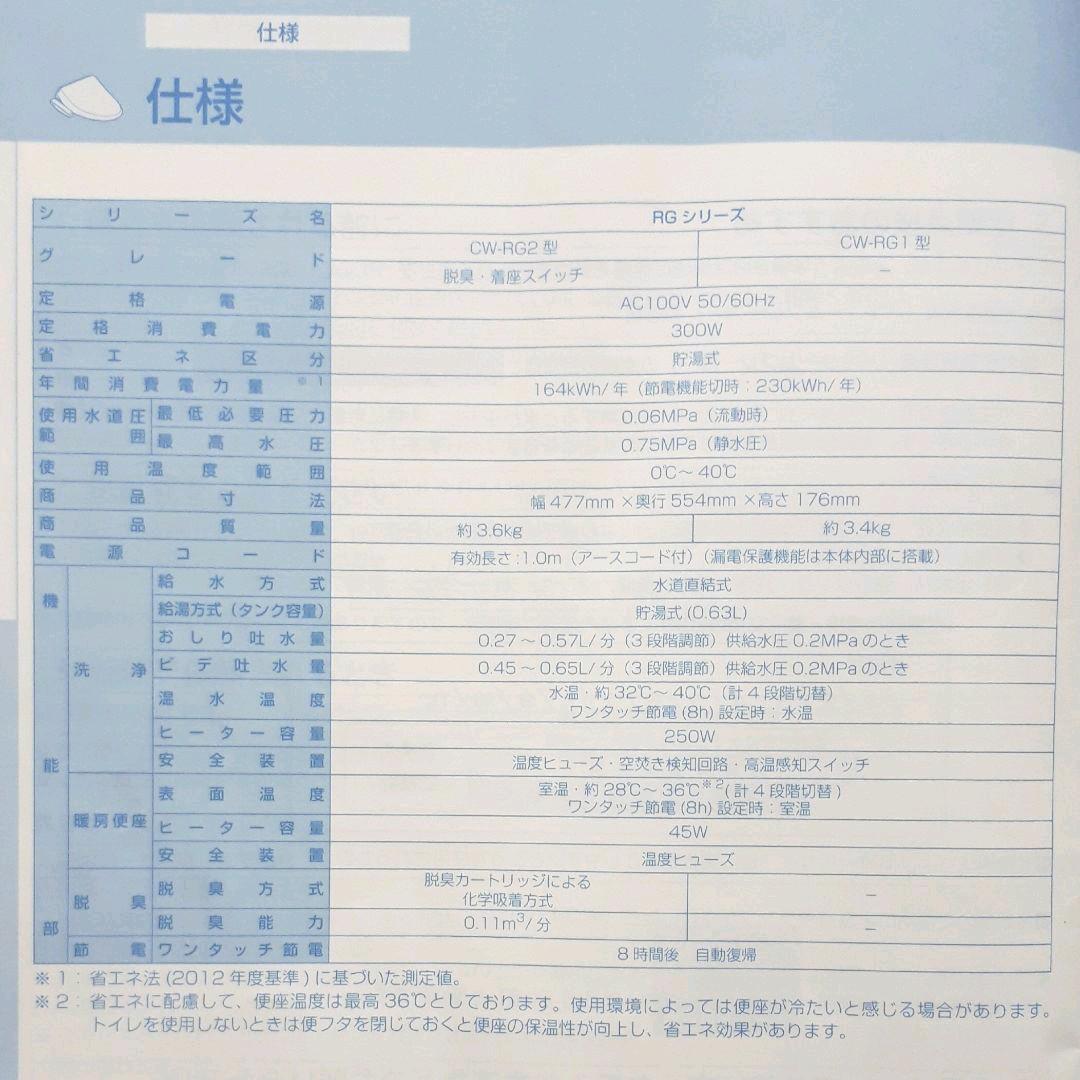 仕様
仕様
シリーズ名 RGシリーズ
グレード CW-RG2型 CW-RG1型
脱臭・着座スイッチ －
定格電源 AC100V 50/60Hz
定格消費電力 300W
省エネ区分 貯湯式
年間消費電力量※1 164kWh/年（節電機能切時：230kWh/年）
使用水道圧範囲 最低必要圧力 0.06MPa（流動時）
最高水圧 0.75MPa（静水圧）
使用温度範囲 0℃～40℃
商品寸法 幅477mm×奥行554mm×高さ176mm
商品質量 約3.6kg 約3.4kg
電源コード 有効長さ:1.0m（アースコード付）（漏電保護機能は本体内部に搭載）
機能部 洗浄 給水方式 水道直結式
給湯方式（タンク容量） 貯湯式(0.63L)
おしり吐水量 0.27～0.57L/分（3段階調節）供給水圧0.2MPaのとき
ビデ吐水量 0.45～0.65L/分（3段階調節）供給水圧0.2MPaのとき
温水温度 水温・約32℃～40℃（計4段階切替）
ワンタッチ節電(8h)設定時：水温
ヒーター容量 250W
安全装置 温度ヒューズ・空焚き検知回路・高温感知スイッチ
暖房便座 表面温度 室温・約28℃～36℃※2(計4段階切替)
ワンタッチ節電(8h)設定時：室温
ヒーター容量 45W
安全装置 温度ヒューズ
脱臭 脱臭方式 脱臭カートリッジによる
化学吸着方式 －
脱臭能力 0.11m³/分 －
節電 ワンタッチ節電 8時間後 自動復帰
※1：省エネ法(2012年度基準)に基づいた測定値。
※2：省エネに配慮して、便座温度は最高36℃としております。使用環境によっては便座が冷たいと感じる場合があります。
トイレを使用しないときは便フタを閉じておくと便座の保温性が向上し、省エネ効果があります。